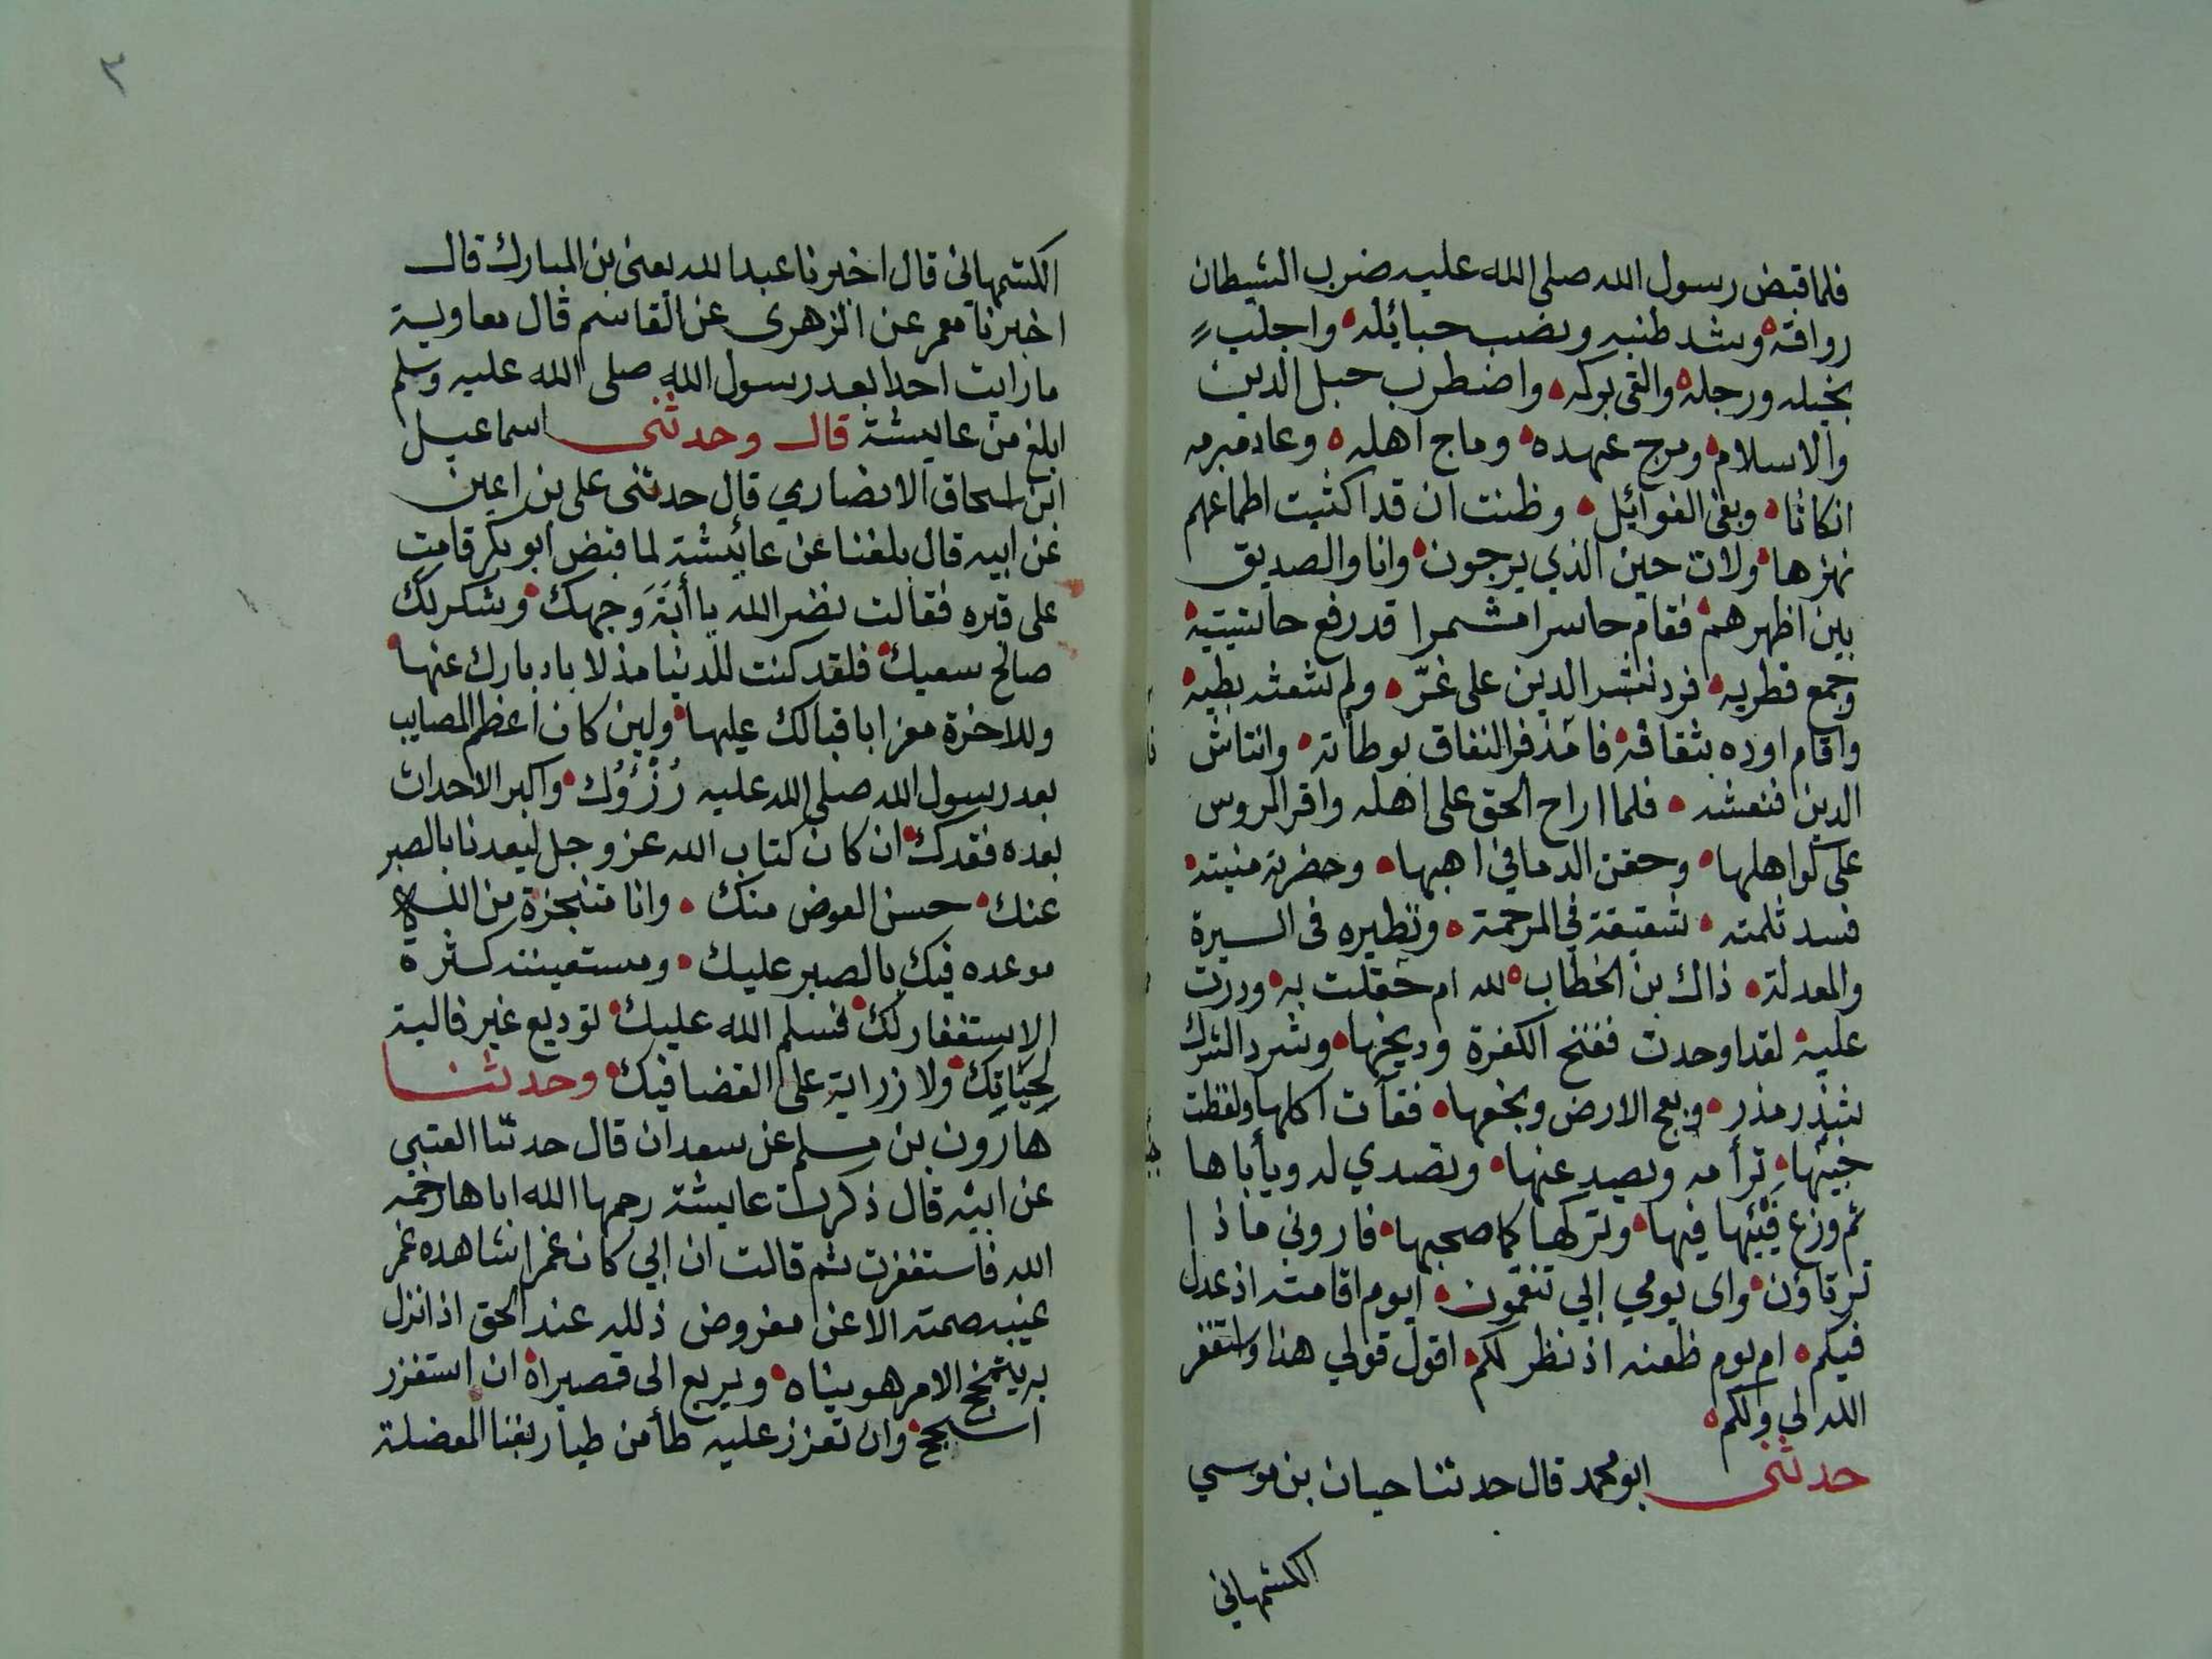 فلما قبض رسول الله صلى الله عليه ضرب الشيطان
رواقه وشد طنبه ونصب حبائله واجلب
بخيله ورجله والقى بركه واضطرب حبل الدين
والاسلام ومرج عهده وماج اهله وعاد مبرمه
انكاثا وبغى الغوائل وظنت ان قد اكثبت اطماعهم
نهزها ولات حين الذي يرجون وانا والصديق
بين اظهرهم فقام حاسرا مشمرا قد رفع حاشيتيه
وجمع قطريه فرد نشر الدين على غره ولم شعثه بطيه
واقام اوده بثقافه فامذقر النفاق بوطأته وانتاش
الدين فنعشه فلما اراح الحق على اهله واقر الروس
على كواهلها وحقن الدما في اهبها وحضرته منيته
فسد ثلمته شقيقة في المرحمة ونظيره فى السيرة
والمعدلة ذاك بن الخطاب لله ام حفلت به ودرت
عليه لقد اوحدت ففنخ الكفرة وديخها وشرد الشرك
شذر مذر وبعج الارض وبخعها فقأت اكلها ولفظت
خبيئها ترأمه ويصد عنها وتصدي له ويأباها
ثم وزع فيئها فيها وتركها كما صحبها فاروني ماذا
ترتاؤن واى يومي ابي تنقمون ايوم اقامته اذ عدل
فيكم ام يوم ظعنه اذ نظر لكم اقول قولي هذا واستغفر
الله لي ولكم
حدثنى ابو محمد قال حدثنا حبان بن موسي
الكشمهاني
٢
الكشمهانى قال اخبرنا عبد الله يعنى بن المبارك قال
اخبرنا معمر عن الزهرى عن القاسم قال معاوية
ما رايت احدا بعد رسول الله صلى الله عليه وسلم
ابلغ من عايشة قال وحدثنى اسماعيل
ابن اسحاق الانصاري قال حدثنى على بن اعين
عن ابيه قال بلغنا عن عائشة لما قبض ابو بكر قامت
على قبره فقالت نضر الله يا أبة وجهك وشكر لك
صالح سعيك فلقد كنت للدنيا مذلا بادبارك عنها
وللاخرة معزا باقبالك عليها ولين كان اعظم المصايب
بعد رسول الله صلى الله عليه رُزْؤُك واكبر الاحداث
بعده فقدك ان كان كتاب الله عز وجل ليعدنا بالصبر
عنك حسن العوض منك وانا متنجزة من الله
موعده فيك بالصبر عليك ومستعينته كثرة
الاستغفار لك فسلم الله عليك توديع غير قالية
لحياتك ولا زراية على القضا فيك وحدثنا
هارون بن مسلم عن سعدان قال حدثنا العتبي
عن ابيه قال ذكرت عايشة رحمها الله اباها رحمه
الله فاستغفرت ثم قالت ان ابي كان غمرا شاهده غمر
غيبه صمته الا عن مفروض ذلله عند الحق اذا نزل
به يتمخخ الامر هويناه ويريع الى قصيراه ان استفزر
اسجح وان تعزز عليه طأمن طيار بفنا المعضلة